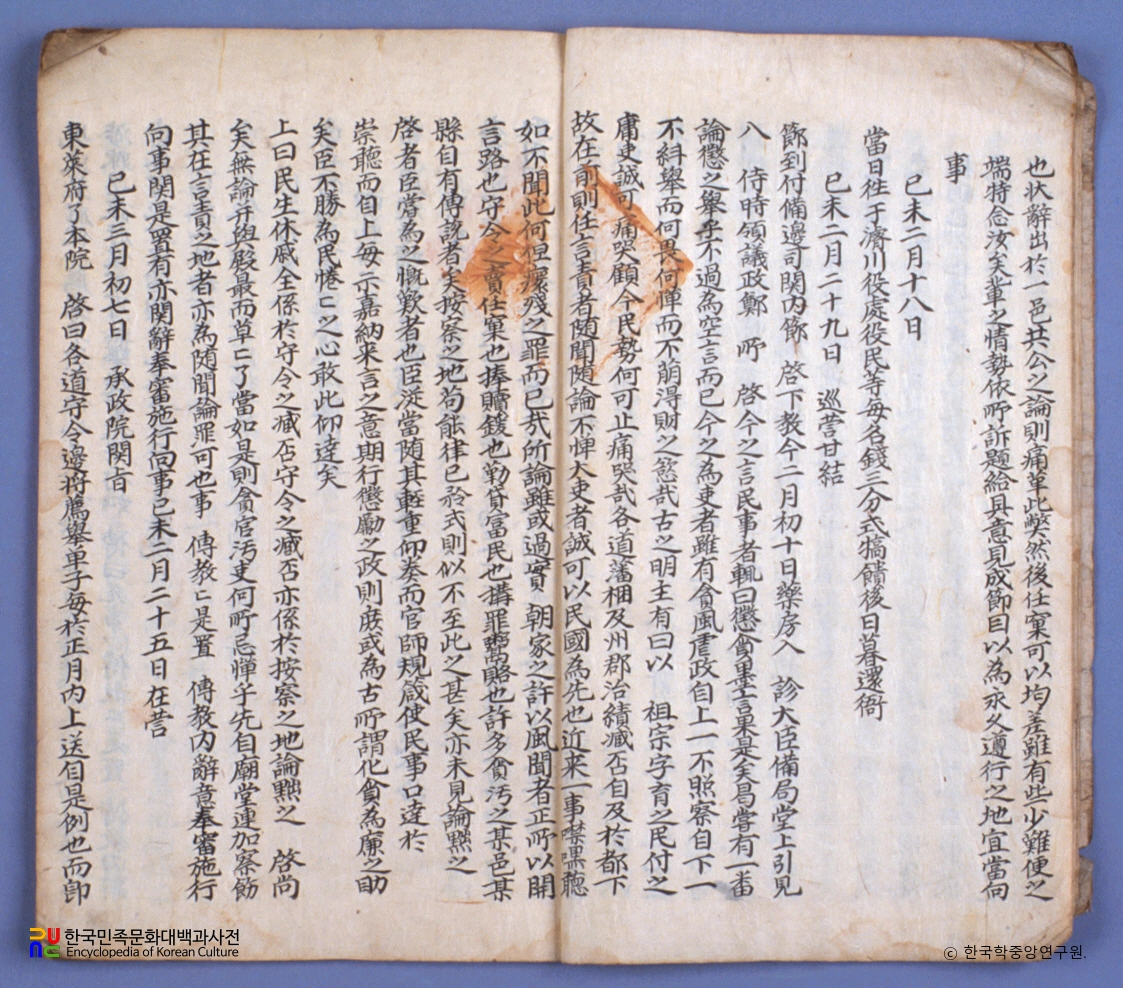 也状辭出於一邑共公之論則痛革此弊然後任窠可以均差雖有些少難便之
端特念汝矣輩之情勢依所訴題給具意見成節目以為永久遵行之地宜當向
事
己未二月十八日
當日徃于濟川役處役民等每名錢三分式犒饋後日暮還衙
己未二月二十九日 巡營甘結
節到付備邊司關內節 啓下敎今二月初十日藥房入 診大臣備局堂上引見
入 侍時領議政鄭 所 啓今之言民事者輒曰懲貪墨言果是矣曷嘗有一番
論懲之擧乎不過為空言而已今之為吏者雖有貪風虐政自上一不照察自下一
不糾擧而何畏何憚而不萠淂財之慾㢤古之明主有曰以 祖宗字育之民付之
庸吏誠可痛哭顧今民勢何可止痛哭㢤各道藩梱及州郡治績臧否自及於都下
故在前則任言責者随聞随論不憚大吏者誠可以民國為先也近来一事噤嘿聴
如不聞此何但壞殘之罪而已㢤所論雖或過實 朝家之許以風聞者正所以開
言路也守令之賣任窠也捧贖鍰也勒貸富民也搆罪鬻賂也許多貪汚之某邑某
縣自有傳說者矣按察之地苟能律己於式則似不至此之甚矣亦未見論黜之
啓者臣嘗為之慨歎者也臣從當随其輕重仰奏而官師規箴使民事口達於
崇聴而自上每示嘉納来言之意期行懲勵之政則庶或為古所謂化貪為廉之助
矣臣不勝為民惓〻之心敢此仰達矣
上曰民生休戚全係於守令之臧否守令之臧否亦係於按察之地論黜之 啓尚
矣無論幷與殿最而草〻了當如是則貪官汚吏何所忌憚乎先自廟堂連加察飭
其在言責之地者亦為随聞論罪可也事 傳敎〻是置 傳敎內辭意奉審施行
向事関是置有亦関辭奉審施行向事己未二月二十五日在營
己未三月初七日 承政院関旨
東萊府了本院 啓曰各道守令邊將薦擧單子每於正月內上送自是例也而卽
한국민족문화대백과사전
Encyclopedia of Korean Culture
© 한국학중앙연구원.